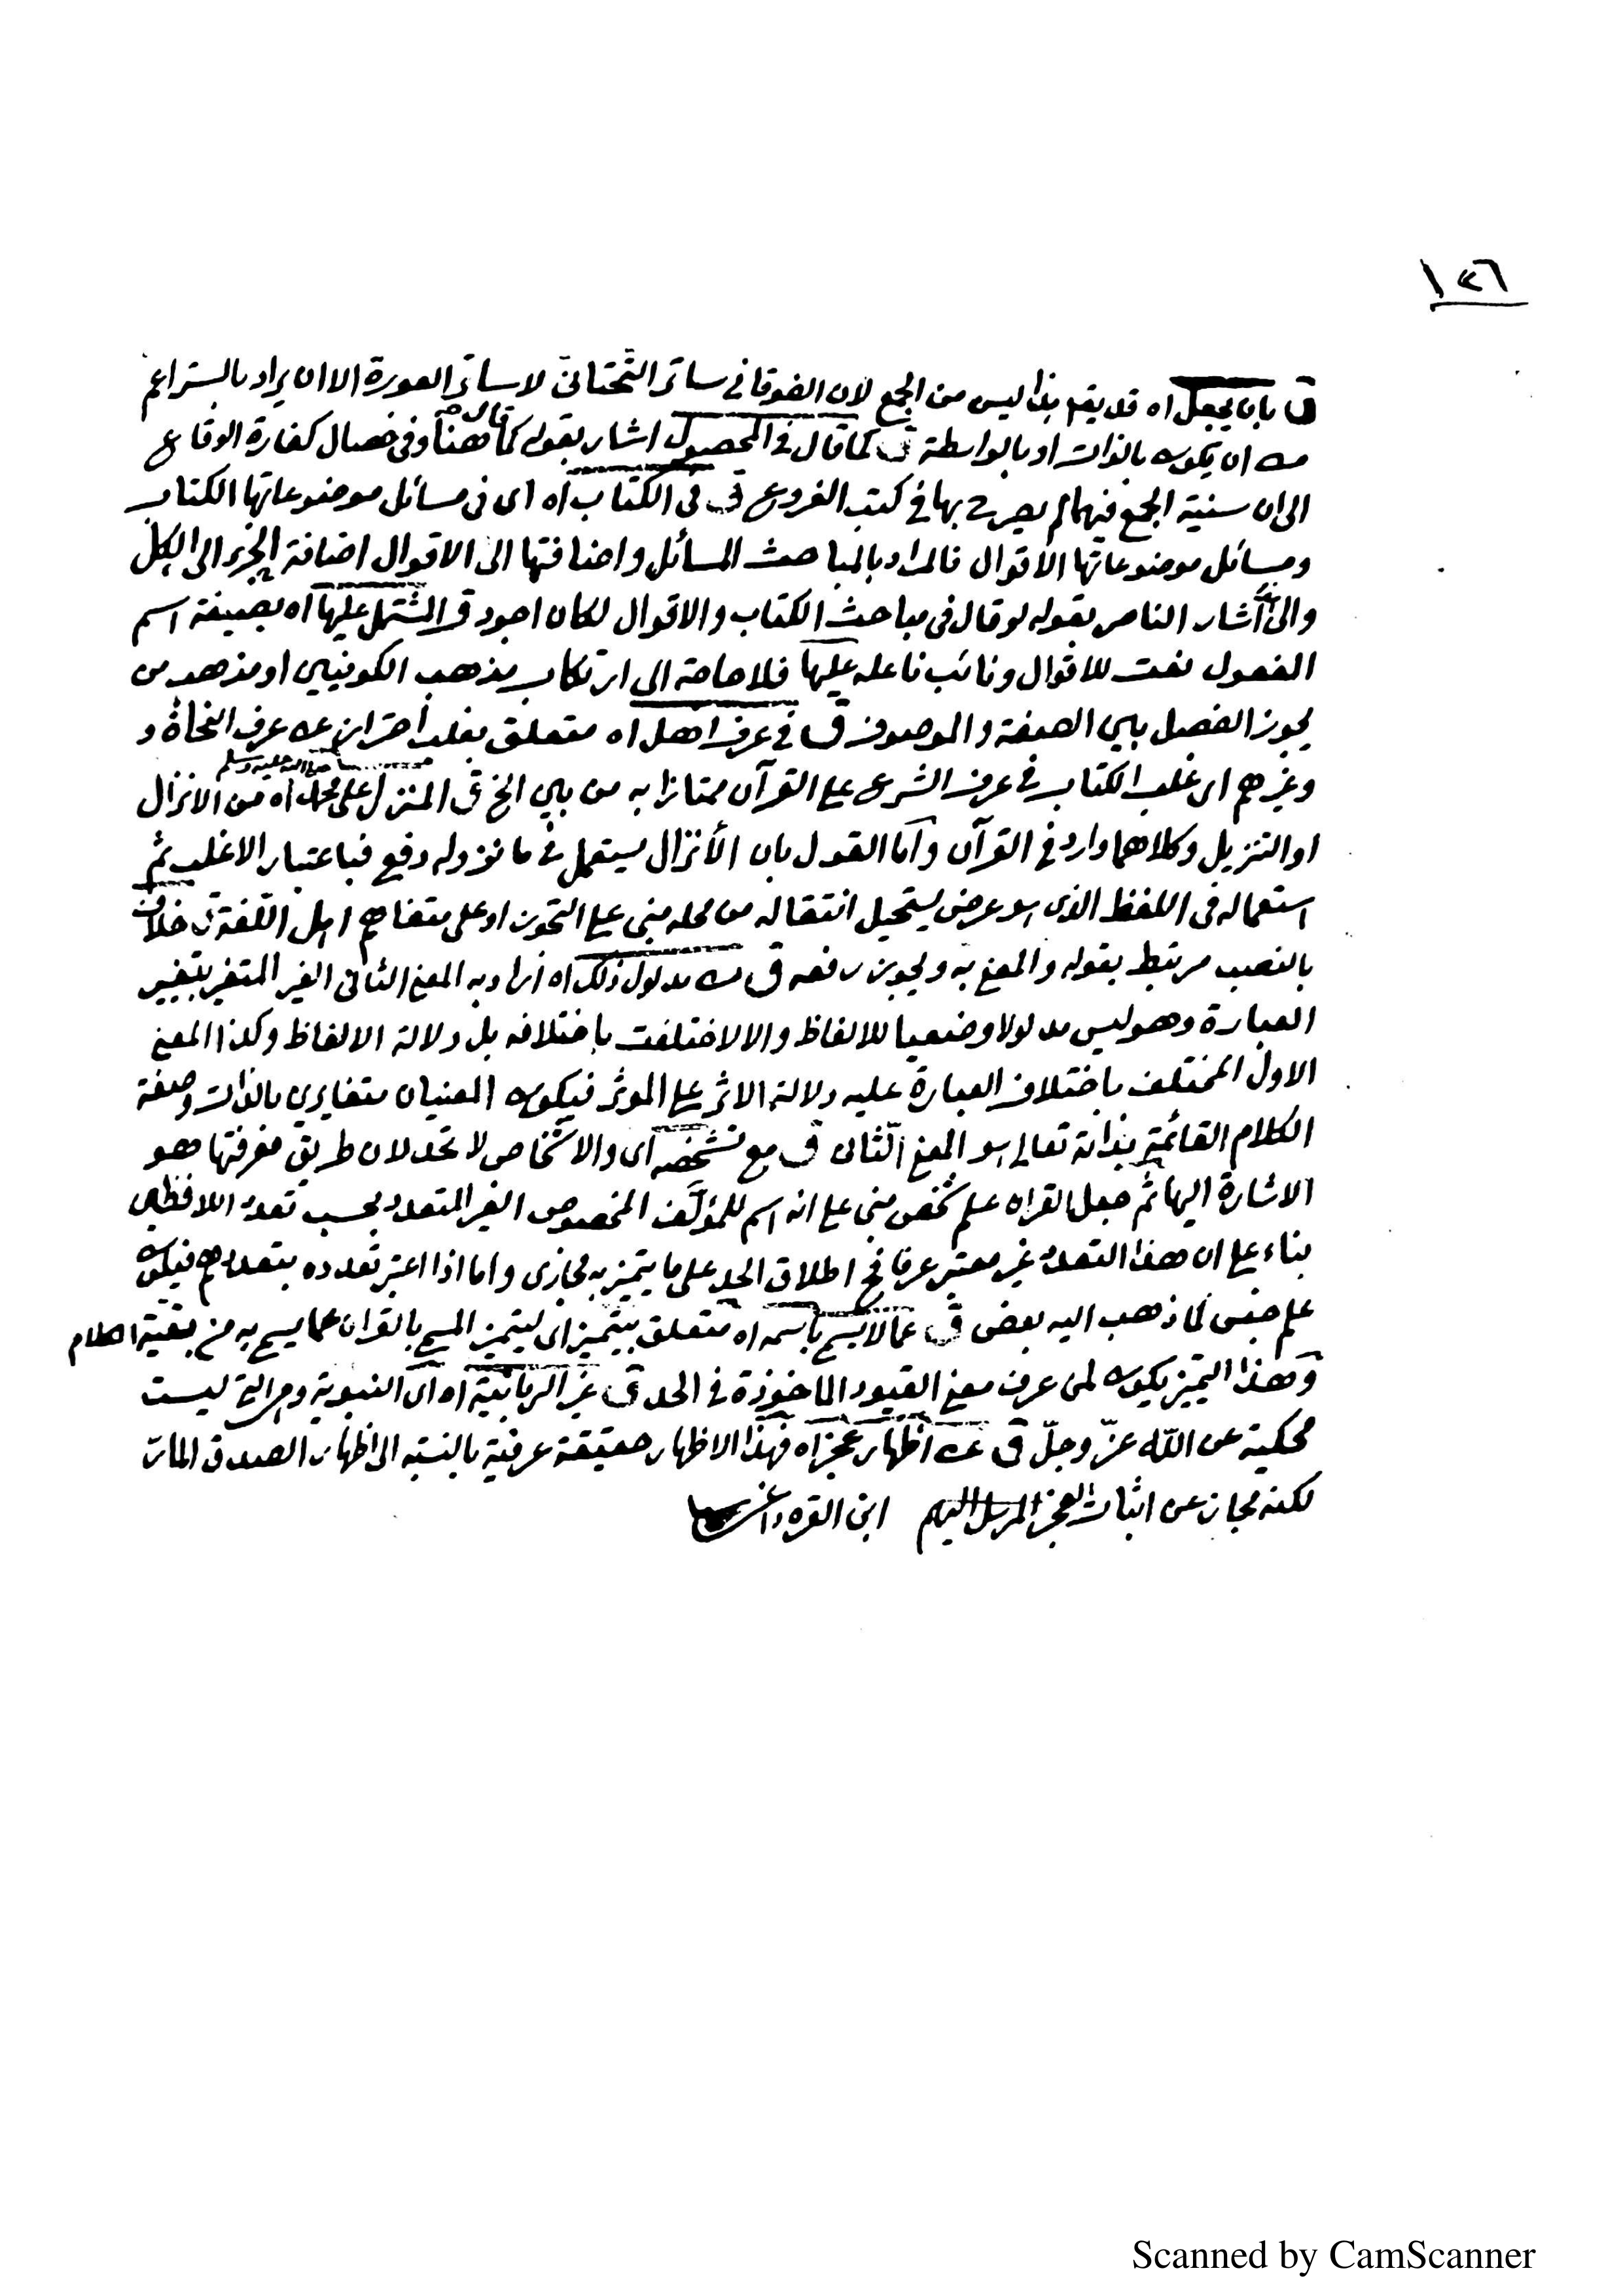 ١٢٦
ق بان يجعل اه قد يقع بذا ليس من الجمع لان الفوقاني ساتر التحتاني لا ساتر العورة الا ان يراد بالستر اعم
من ان يكون بالذات او بالواسطة ق كما قال في المحصول اشار بقوله كما قال هنا وفي خصال كفارة الوقاع
الى ان سنية الجمع فيهما لم يصرح بها في كتب الفروع ق في الكتاب اه اى في مسائل موضوعاتها الكتاب
ومسائل موضوعاتها الاقوال فالمراد بالمباحث المسائل واضافتها الى الاقوال اضافة الجزء الى الكل
والى اشار الناصر بقوله لو قال في مباحث الكتاب والاقوال لكان اجود ق المشتمل عليها اه بصيغة اسم
المفعول نعت للاقوال ونائب فاعله عليها فلا حاجة الى ارتكاب مذهب الكوفيين او مذهب من
يجوز الفصل بين الصفة والموصوف ق في عرف اهل اه متعلق بغلب احتراز عن عرف النحاة و
وغيرهم اى غلب الكتاب في عرف الشرع على القرآن ممتازا به من بين الخ ق المنزل على محمد صلى الله عليه وسلم اه من الانزال
او التنزيل وكلاهما وارد في القرآن واما القول بان الأنزال يستعمل في ما نزوله دفع فباعتبار الاغلب ثم
استعماله في اللفظ الذى هو عرض يستحيل انتقاله من محله مبني على التجوز او على متفاهم اهل اللغة ق خلاف
بالنصب مرتبط بقوله والمعنى به ويجوز رفعه ق من مدلول ذلك اه أراد به المعنى الثاني الغير المتغير بتغيير
العبارة وهو ليس مدلولا وضعيا للالفاظ والا لاختلفت باختلافه بل دلالة الالفاظ وكذا المعنى
الاول المختلف باختلاف العبارة عليه دلالة الاثر على الموثر فيكون المعنيان متغايرين بالذات وصفة
الكلام القائمة بذاته تعالى هو المعنى الثاني ق مع تشخصه اى والاشخاص لا تحد لان طريق معرفتها هو
الاشارة اليها ثم جعل القران علم شخص مبني على انه اسم للمؤلف المخصوص الغير المتعدد بحسب تعدد اللافظين
بناء على ان هذا التعدد غير معتبر عرفا فح اطلاق الحد على ما يتميز به مجازى واما اذا اعتبر تعدده بتعددهم فيكون
علم جنس كما ذهب اليه بعض ق عما لا يسمى باسمه اه متعلق بيتميز اى ليتميز المسمى بالقران عما يسمى به من بقية الكلام
وهذا التميز يكون لمن عرف معنى القيود الماخوذة في الحد ق غير الربانية اه اى النبوية وهى التى ليست
محكية عن الله عز وجل ق عن اظهار عجز اه فهذا الاظهار حقيقة عرفية بالنسبة الى اظهار الصدق المار
لكنه مجاز عن اثبات العجز المرسل اليهم ابن القره داغى
Scanned by CamScanner